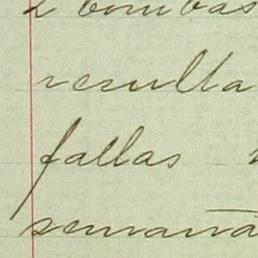 2 bombas
resulta
fallas
semana